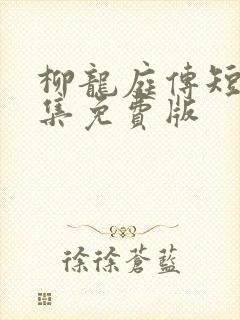 柳龍庭傅短
集免費版
徐徐蒼藍